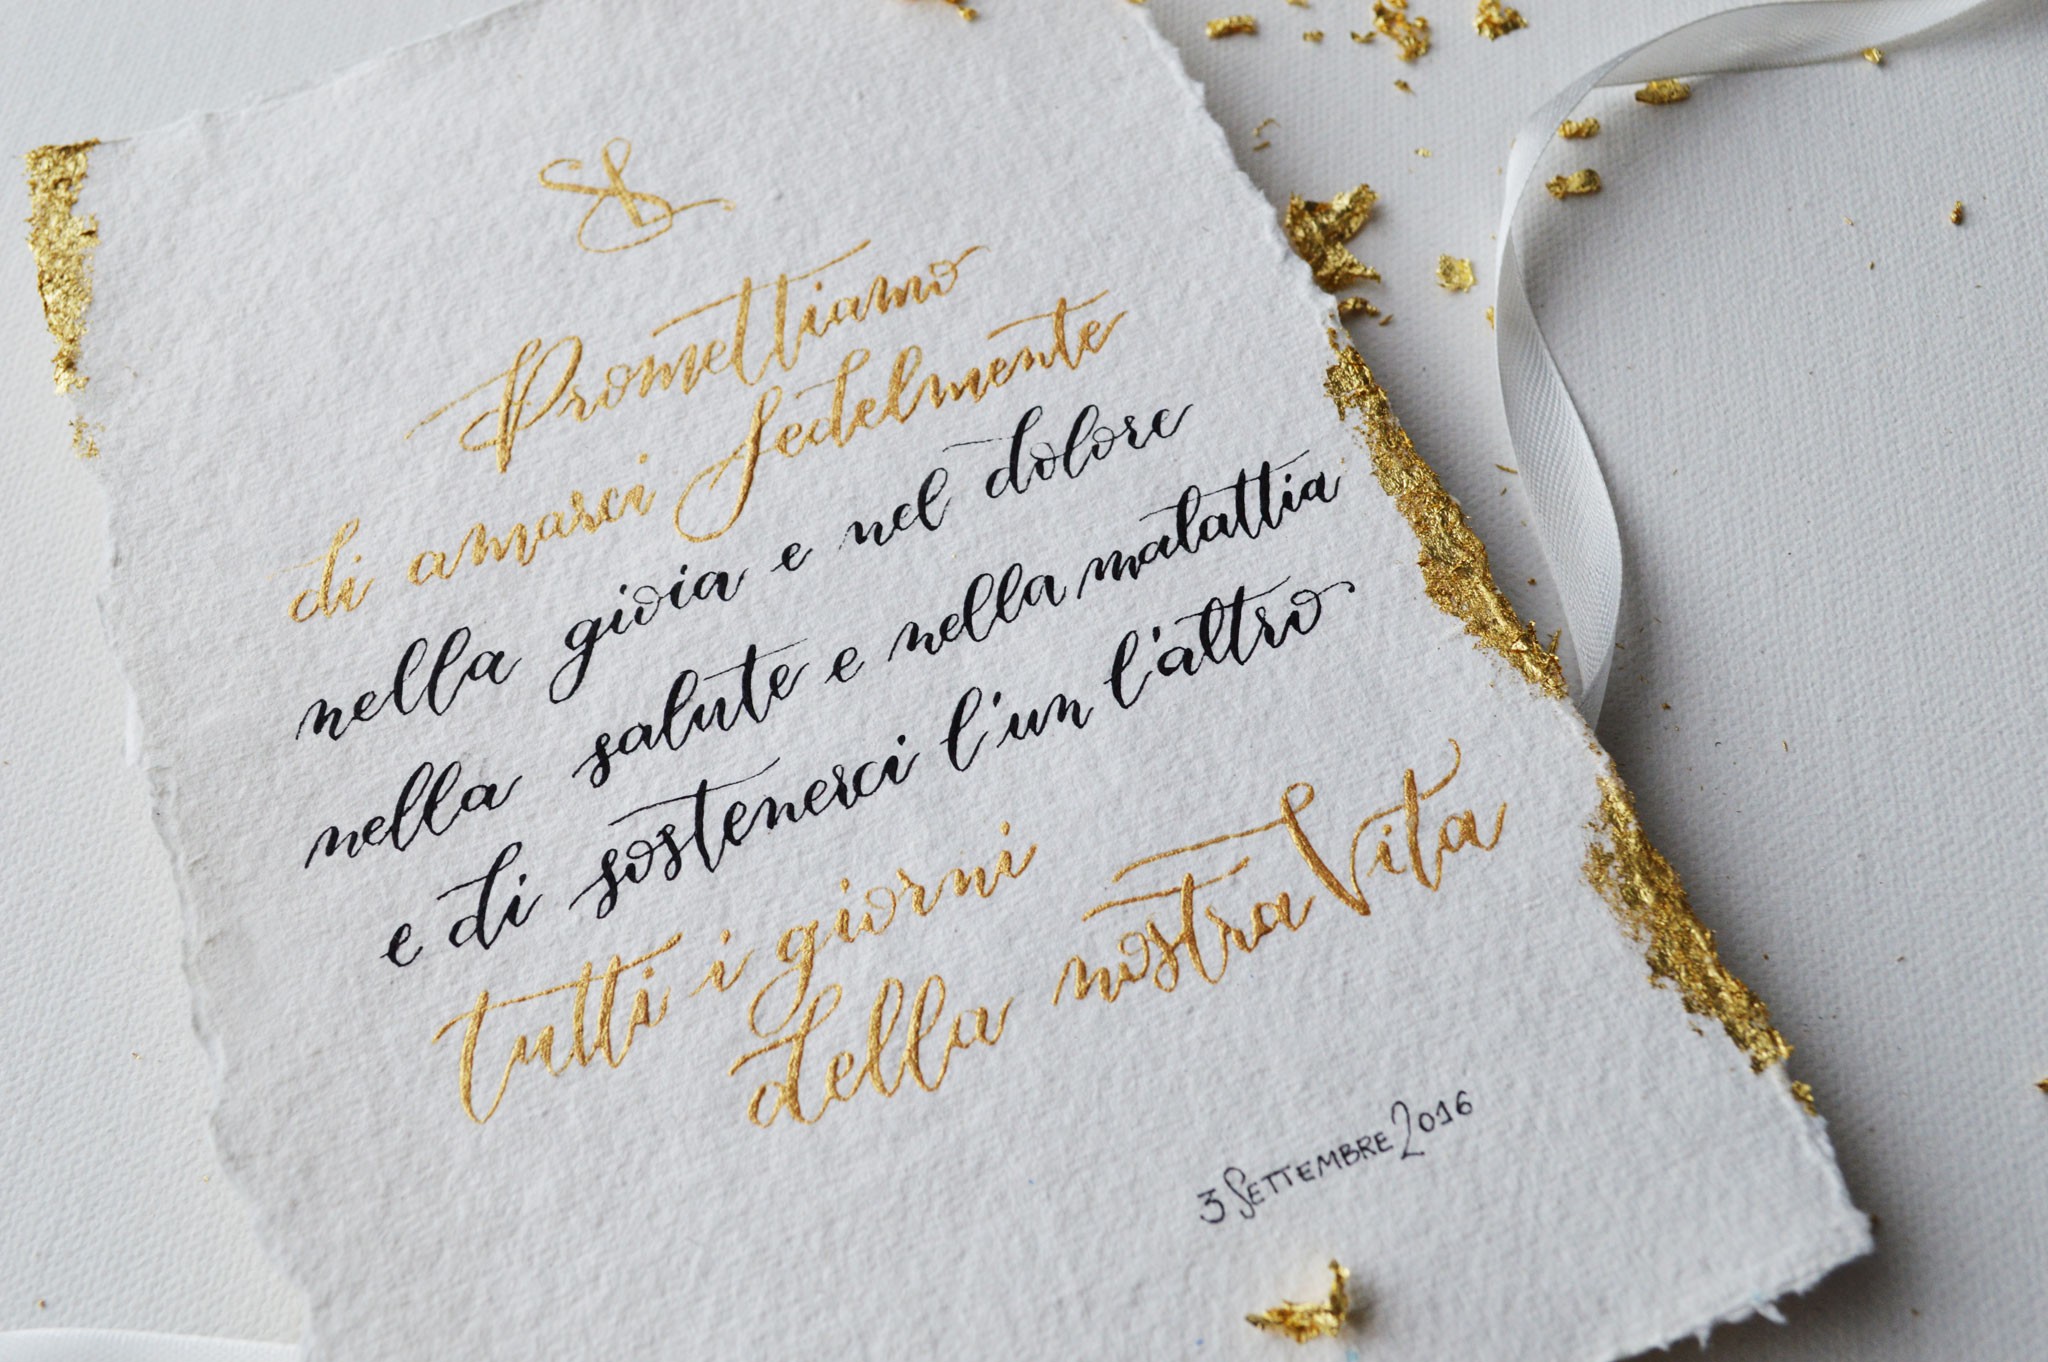 SL
Promettiamo
di amarci fedelmente
nella gioia e nel dolore
nella salute e nella malattia
e di sostenerci l'un l'altro
tutti i giorni
della nostra Vita
3 SETTEMBRE 2016